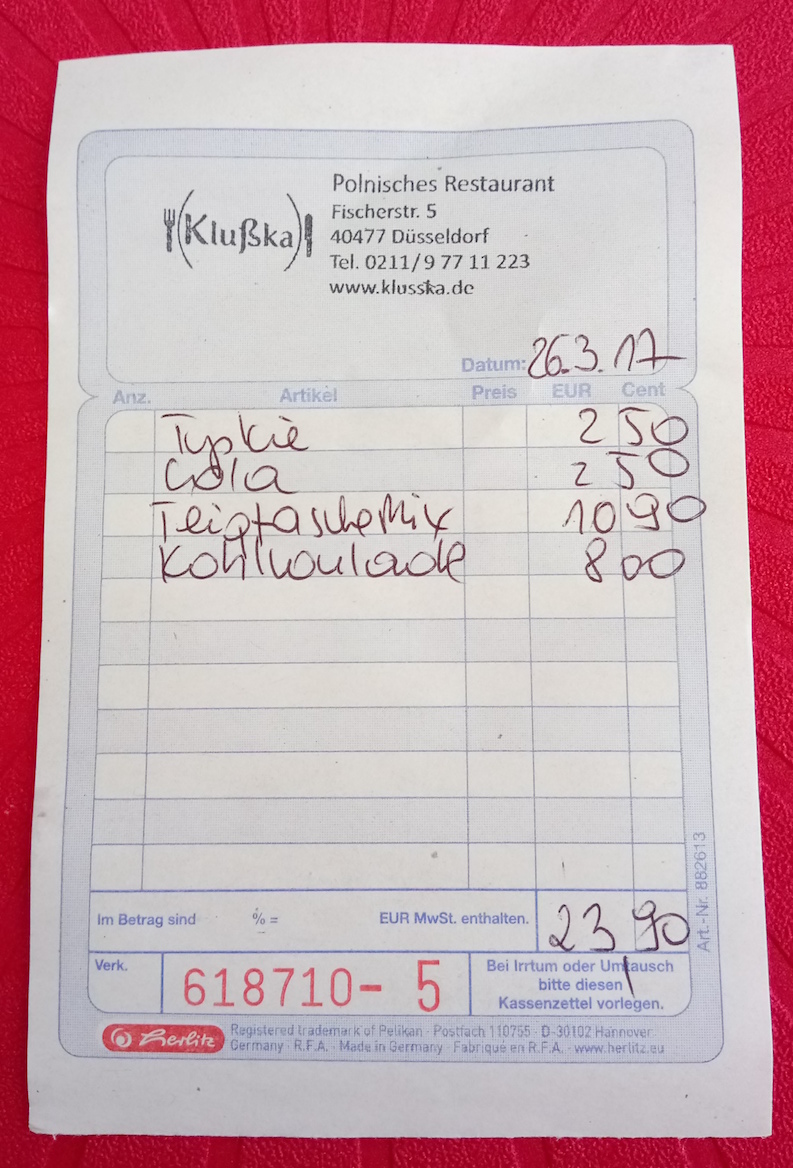 Klußka
Polnisches Restaurant
Fischerstr. 5
40477 Düsseldorf
Tel. 0211/9 77 11 223
www.klusska.de
Datum: 26.3.17
Anz. Artikel Preis EUR Cent
Tyskie 2 50
Cola 2 50
TeigtascheMix 10 90
Kohlroulade 8 00
Im Betrag sind % = EUR MwSt. enthalten. 23 90
Verk. 618710- 5
Bei Irrtum oder Umtausch
bitte diesen
Kassenzettel vorlegen.
Art.-Nr. 882613
herlitz
Registered trademark of Pelikan · Postfach 110755 · D-30102 Hannover
Germany · R.F.A. · Made in Germany · Fabriqué en R.F.A. · www.herlitz.eu